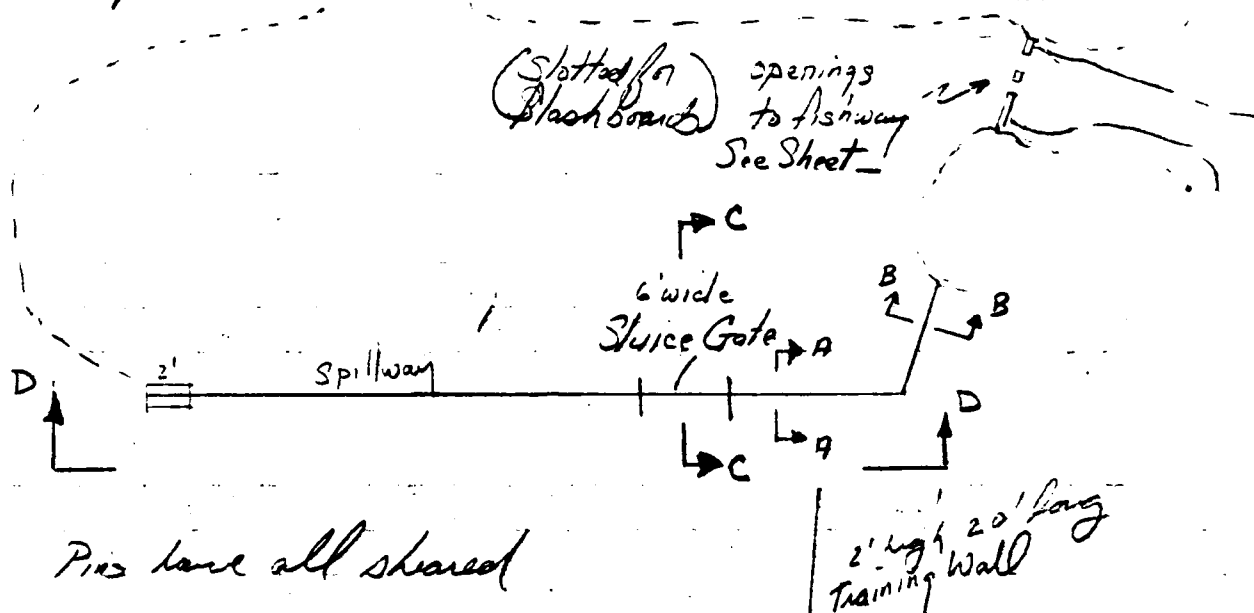 (Slotted for
Flashboards)
openings
to fishway
See Sheet _
C
6' wide
Sluice Gate
B
B
A
2'
Spillway
D
D
A
C
Pins have all sheared
2' high 20' long
Training Wall